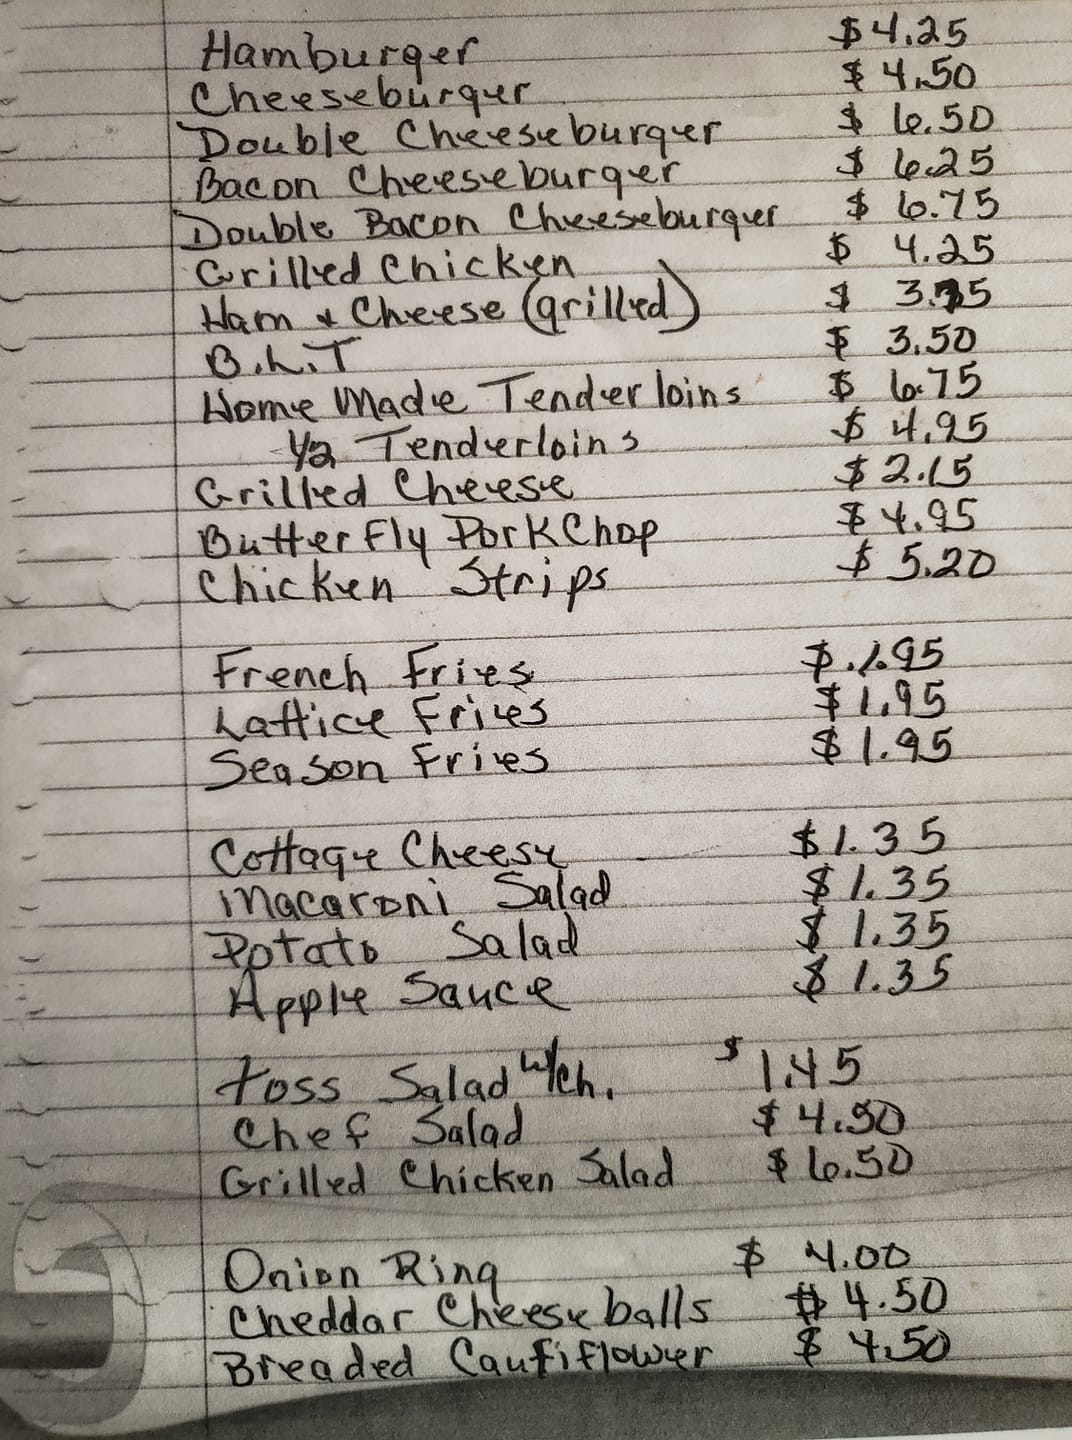 Hamburger $4.25
Cheeseburger $4.50
Double Cheeseburger $6.50
Bacon Cheeseburger $6.25
Double Bacon Cheeseburger $6.75
Grilled Chicken $4.25
Ham + Cheese (grilled)
B.L.T $3.50
Home Made Tenderloins $6.75
1/2 Tenderloins $4.95
Grilled Cheese $2.15
Butterfly Pork Chop $4.95
Chicken Strips $5.20
French Fries $.1.95
Lattice Fries $1.95
Season Fries $1.95
Cottage Cheese $1.35
Macaroni Salad $1.35
Potato Salad $1.35
Apple Sauce $1.35
Toss Salad w/ch. $1.45
Chef Salad $4.50
Grilled Chicken Salad $6.50
Onion Ring $4.00
Cheddar Cheese balls $4.50
Breaded Caufiflower $4.50